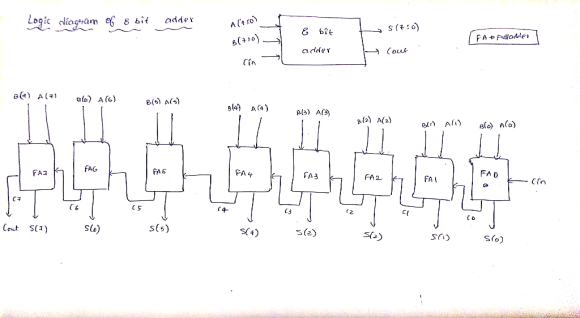 Logic diagram of 8 bit adder
A(7:0)
B(7:0)
Cin
8 bit
adder
S(7:0)
Cout
FA → Fulladder
B(7) A(7)
B(6) A(6)
B(5) A(5)
B(4) A(4)
B(3) A(3)
B(2) A(2)
B(1) A(1)
B(0) A(0)
FA7
FA6
FA5
FA4
FA3
FA2
FA1
FA0
Cin
C7
C6
C5
C4
C3
C2
C1
C0
Cout
S(7)
S(6)
S(5)
S(4)
S(3)
S(2)
S(1)
S(0)